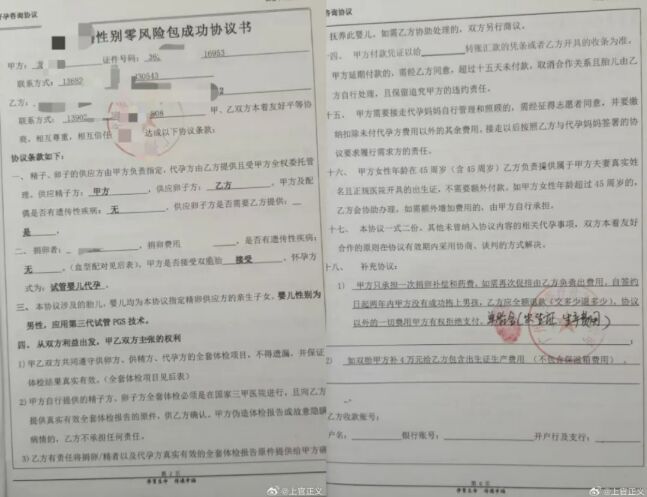 孕咨询协议
性别零风险包成功协议书
甲方：
证件号码：
16953
联系方式：13682
130543
乙方：
联系方式：13902
808
甲、乙双方本着友好平等协
商、相互尊重，相互信任
达成以下协议条款：
协议条款如下：
一、精子、卵子的供应方由甲方负责指定，代孕方由乙方提供且受甲方全权委托管
理。供应精子方： 甲方 ，供应卵子方： 乙方 ，甲方及配
偶是否有遗传性疾病： 无 。供应卵子方是否需要乙方提供：
是 。
二、捐卵者：
，捐卵费用
，是否有遗传性疾病：
无 。（血型配对见后表）。甲方是否接受双胞胎 接受 。怀孕方
式为：试管婴儿代孕。
三、本协议涉及的胎儿、婴儿均为本协议指定精卵供应方的亲生子女。婴儿性别为
男性，应用第三代试管 PGS 技术。
四、从双方利益出发，甲乙双方主张的权利
1）甲乙双方共同遵守供卵方、供精方、代孕方的全套体检项目，不得遗漏，并保证
体检结果真实有效。（全套体检项目见后表）
2）甲方自行提供的精子方、卵子方全套体检必须是在国家三甲医院进行，且向乙方
提供真实有效全套体检报告的原件，供乙方确认。甲方伪造体检报告或故意隐瞒
病情的，乙方不承担任何责任。
3）乙方有责任将捐卵/精者以及代孕方真实有效的全套体检报告原件提供给甲方确
孕育生命 传递幸福
@上官正义
咨询协议
抚养此婴儿，如需乙方协助处理的，双方另行商议。
十四、甲方付款凭证以给
转账汇款的凭条或者乙方开具的收条为准。
甲方延期付款的，需经乙方同意，超过十五天未付款，取消合作关系且胎儿由乙
方自行处理，且保留追究甲方的违约责任。
十五、甲方需要接走代孕妈妈自行管理和照顾的，需经征得志愿者同意，并要缴
纳扣除未付代孕方费用以外的其余费用。接走以后按照乙方与代孕妈妈签署的协
议要求履行需求方的责任。
十六、甲方女性年龄在 45 周岁（含 45 周岁）乙方负责提供属于甲方夫妻真实姓
名且正规医院开具的出生证，不需要额外付款。如甲方女性年龄超过 45 周岁的，
乙方会协助办理，如需额外增加费用的，由甲方自行承担。
十七、本协议一式二份，其他未曾纳入协议内容的相关代孕事项，双方本着友好
合作的原则在协议有效期内采用协商、谈判的方式解决。
十八、补充协议：
1） 甲方只承担一次捐卵补偿和药费，如需再次促排由乙方负责出费用，自签约
日起两年内甲方没有成功抱上男孩，乙方应全额退款（交多少退多少），协议
以外的一切费用甲方有权拒绝支付。
2） 如双胎甲方补 4 万元给乙方包含出生证生产费用 （不包含保温箱费用）
乙方收款账号：
户名：
银行账号：
开户行及支行：
第 6 页
孕育生命 传递幸福
@上官正义